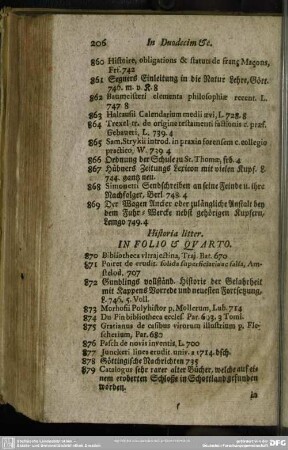 206 In Duodecim &c.
860 Histoire, obligations & statuts de franç Maçons,
Frf. 742
861 Segners Einleitung in die Natur Lehre, Gött.
746. m. v. K. 8
862 Baumeisteri elementa philosophiæ recent. L.
747 8
863 Haltausii Calendarium medii ævi, L. 728. 8
864 Trexel tr. de origine testamenti factionis c. præf.
Gebaueri, L. 739. 4
865 Sam. Strykii introd. in praxin forensem c. collegio
practico, W. 739. 4
866 Ordnung der Schule zu St. Thomæ, frf. 4
867 Hübners Zeitungs Lexicon mit vielen Kupf. L.
744. gantz neu.
868 Simonetti Sendschreiben an seine Feinde u. ihre
Nachfolger, Berl. 748. 4
869 Der Wagen Ancker oder zulängliche Anstalt bey
dem Fuhr Wercke nebst gehörigen Kupfern,
Lemgo 749. 4
Historia litter.
IN FOLIO & QVARTO.
870 Bibliotheca vltrajectina, Traj. Bat. 670
871 Poiret de erudit. solida superficiaria & falsa, Am-
stelod. 707
872 Gundlings vollständ. Historie der Gelahrheit
mit Kappens Vorrede und neuesten Fortsetzung,
L. 746. 5. Voll.
873 Morhofii Polyhistor p. Mollerum, Lub. 714
874 Du Pin bibliotheca eccles. Par. 693. 3 Tomi.
875 Gratianus de casibus virorum illustrium p. Fle-
scherium, Par. 680
876 Pasch de novis inventis, L. 700
877 Junckeri linea erudit. univ. a 1714. dsch.
878 Göttingische Nachrichten 735
879 Catalogus sehr rarer alter Bücher, welche auf ei-
nem eroberten Schlosse in Schottland gefunden
worden.
in